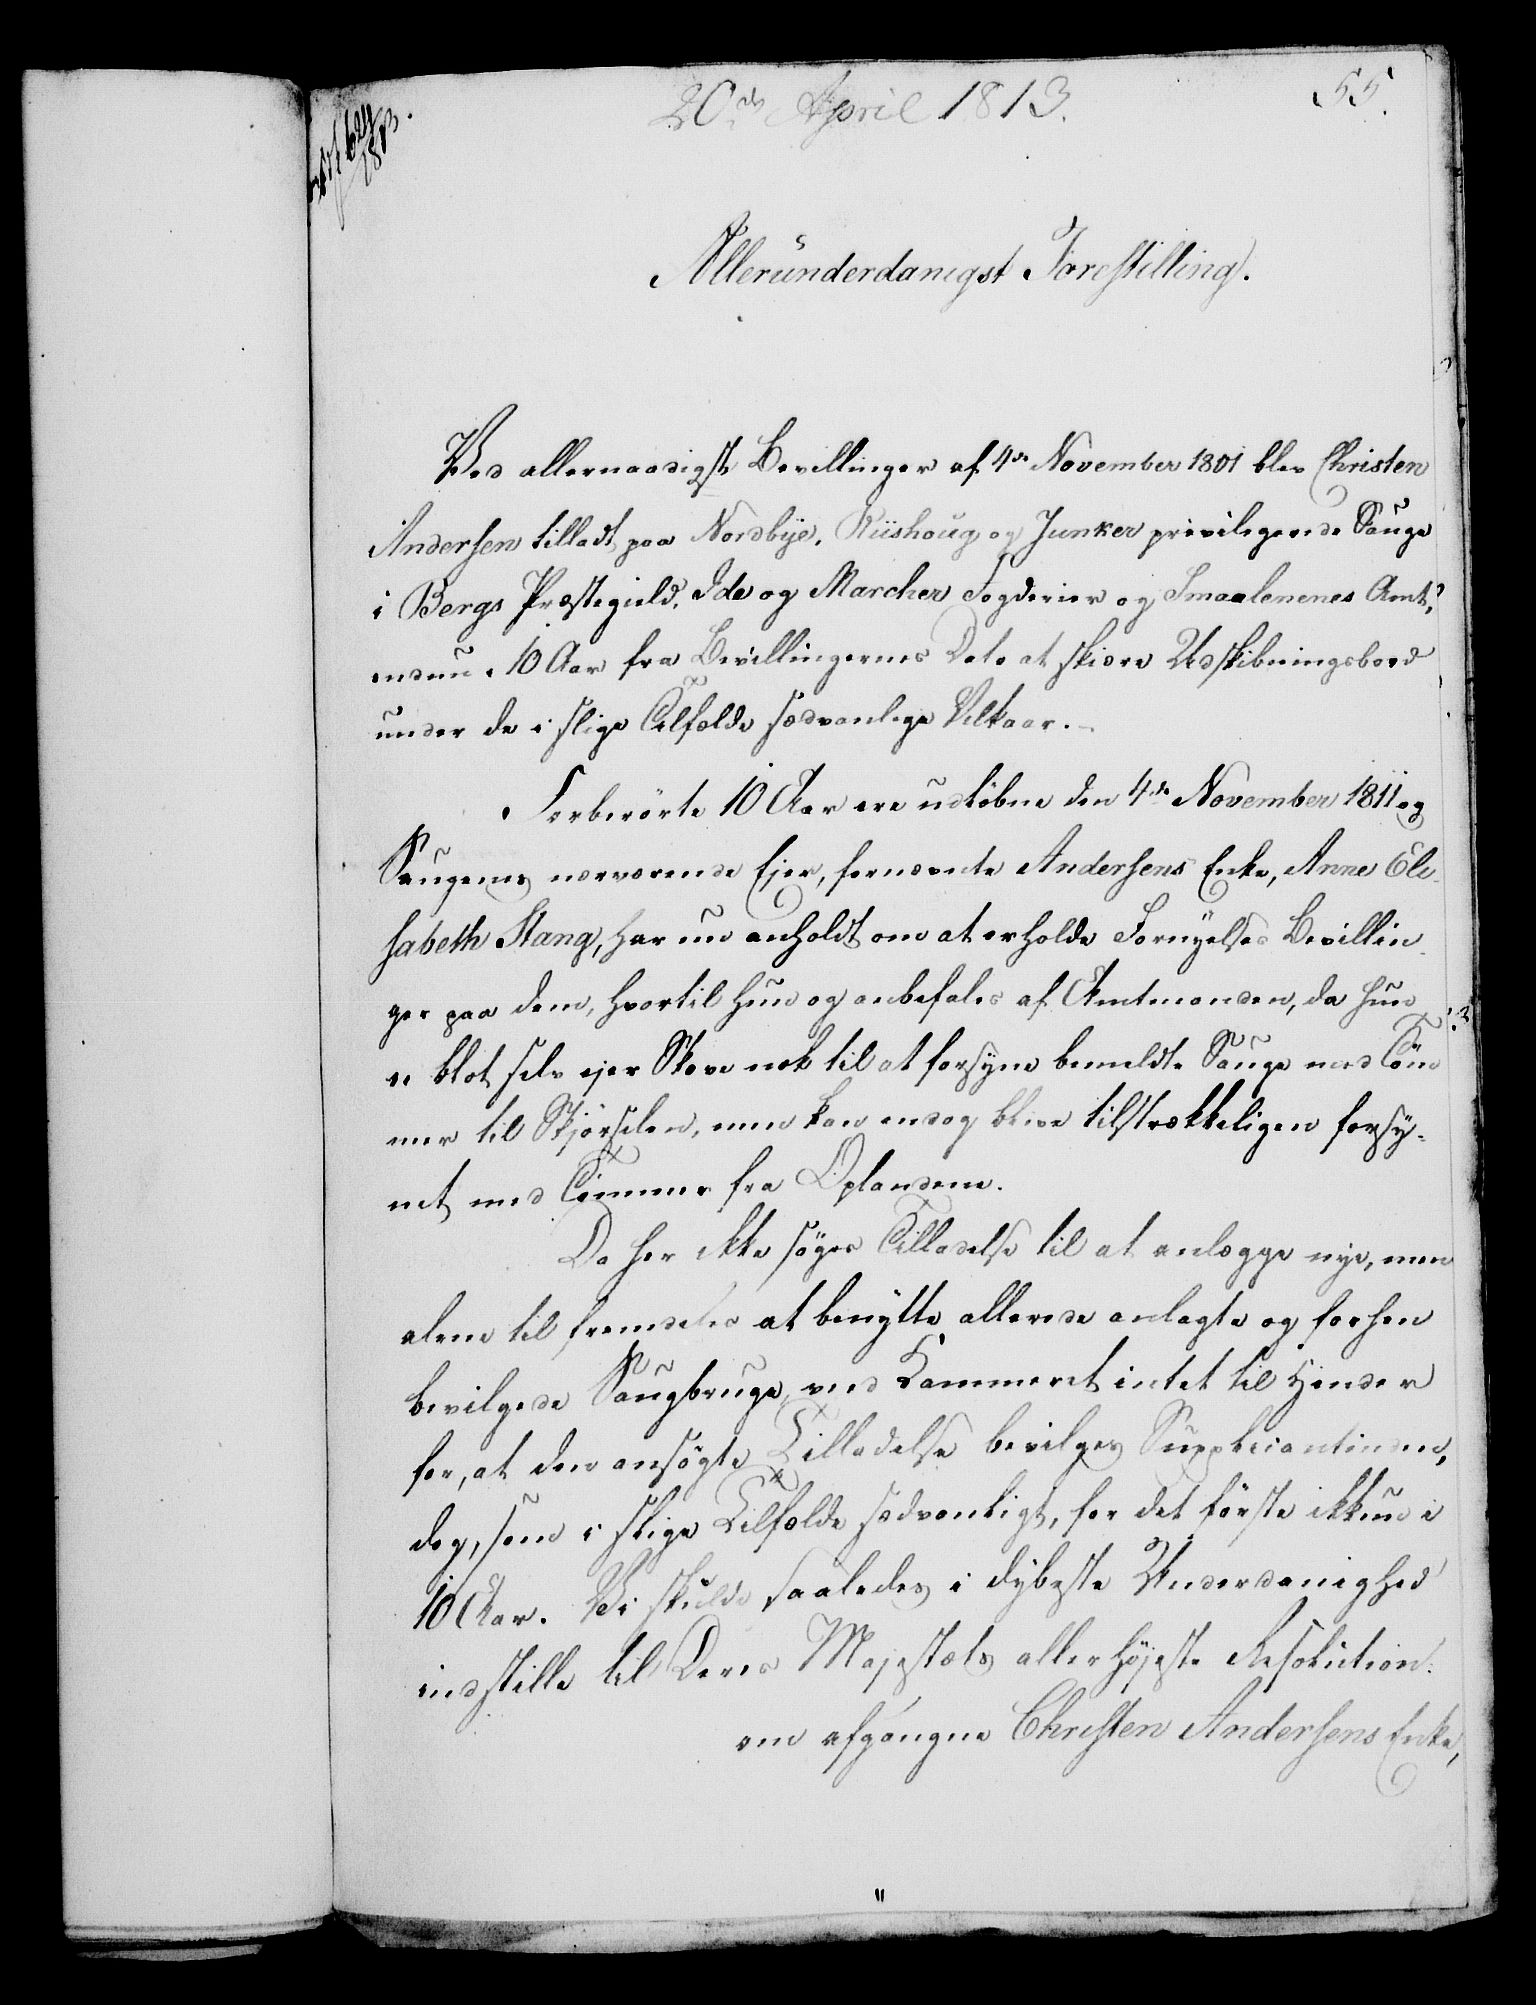 20de April 1813.
55.
1813.
Allerunderdanigst Forestilling.
Ved allernaadigst Bevillinger af 4de November 1801 blev Christen
Andersen tilladt paa Nordbye, Riishoug og Junker privilegerede Sauge
i Bergs Præstegield, Ide og Marcher Fogderier og Smaalenenes Amt,
endnu i 10 Aar fra Bevillingernes Dato at skiære Udskibningsbord
under de i slige Tilfælde sædvanlige Vilkaar. –
Forberørte 10 Aar ere udløbne den 4de November 1811 og
Saugenes nærværende Ejer, fornævnte Andersens Enke, Anne Eli-
sabeth Stang, har nu anholdt om at erholde Fornyelses Bevillin-
ger paa dem, hvortil hun og anbefales af Amtmanden, da hun
ei blot selv ejer Skove nok til at forsyne bemeldte Sauge med Töm
mer til Skjørselen, men kan endog blive tilstrækkeligen forsy-
net med Tømmer fra Oplandene.
Da her ikke søges Tilladelse til at anlægge nye, men
alene til fremdeles at benytte allerede anlagte og forhen
bevilgede Saugbruge, veed Kammeret intet til Hinder
for, at den ansøgte Tilladelse bevilges Supplicantinden,
dog, som i slige Tilfælde sædvanligt, for det første ikkun i
10 Aar. Vi skulde saaledes i dybeste Underdanighed
indstille til Deres Majestæts allerhøjeste Resolution:
om afgangne Christen Andersens Enke,